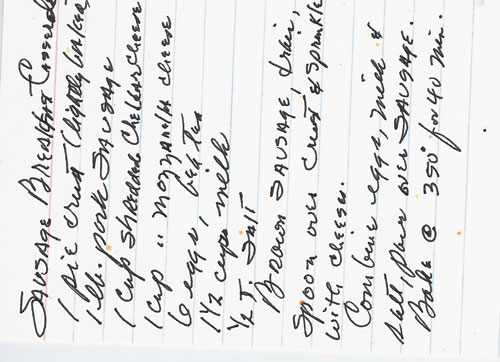 Sausage Breakfast Casserole
1 pie crust (lightly baked
1 lb. pork sausage
1 cup shredded cheddar cheese
1 cup " mozzarella cheese
6 eggs, beaten
1 1/2 cups milk
1/2 t. salt
Brown sausage, drain,
spoon over crust & sprinkle
with cheeses.
Combine eggs, milk &
salt, pour over sausage.
Bake @ 350° for 40 min.